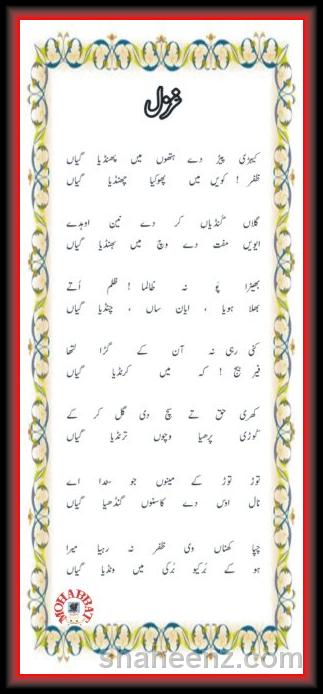 غزل
کیہڑی پیڑ دے ہتھوں میں پھنڈیا گیاں
ظفر ! کویں میں پھوکیا چھنڈیا گیاں
گلاں گنڈیاں کر دے نین اوہدے
ایویں مفت دے وچ میں بھنڈیا گیاں
بھیڑا پو نہ ظالما ! ظلم اُتے
بھلا ہویا ، ایان ساں ، چنڈیا گیاں
کئی رہی نہ آن کے گڑا لتھا
فیر بیج ! کہ میں کرنڈیا گیاں
کھری حق تے سچ دی گل کر کے
کوڑی پرھیا وچوں ترنڈیا گیاں
توڑ توڑ کے مینوں جو سدا اے
نال اوس دے کاسنوں گنڈھیا گیاں
چپا کھناں وی ظفر نہ رہیا میرا
ہو کے بُرکیو بُرکی میں ونڈیا گیاں
MOHABBAT
shaheenz.com